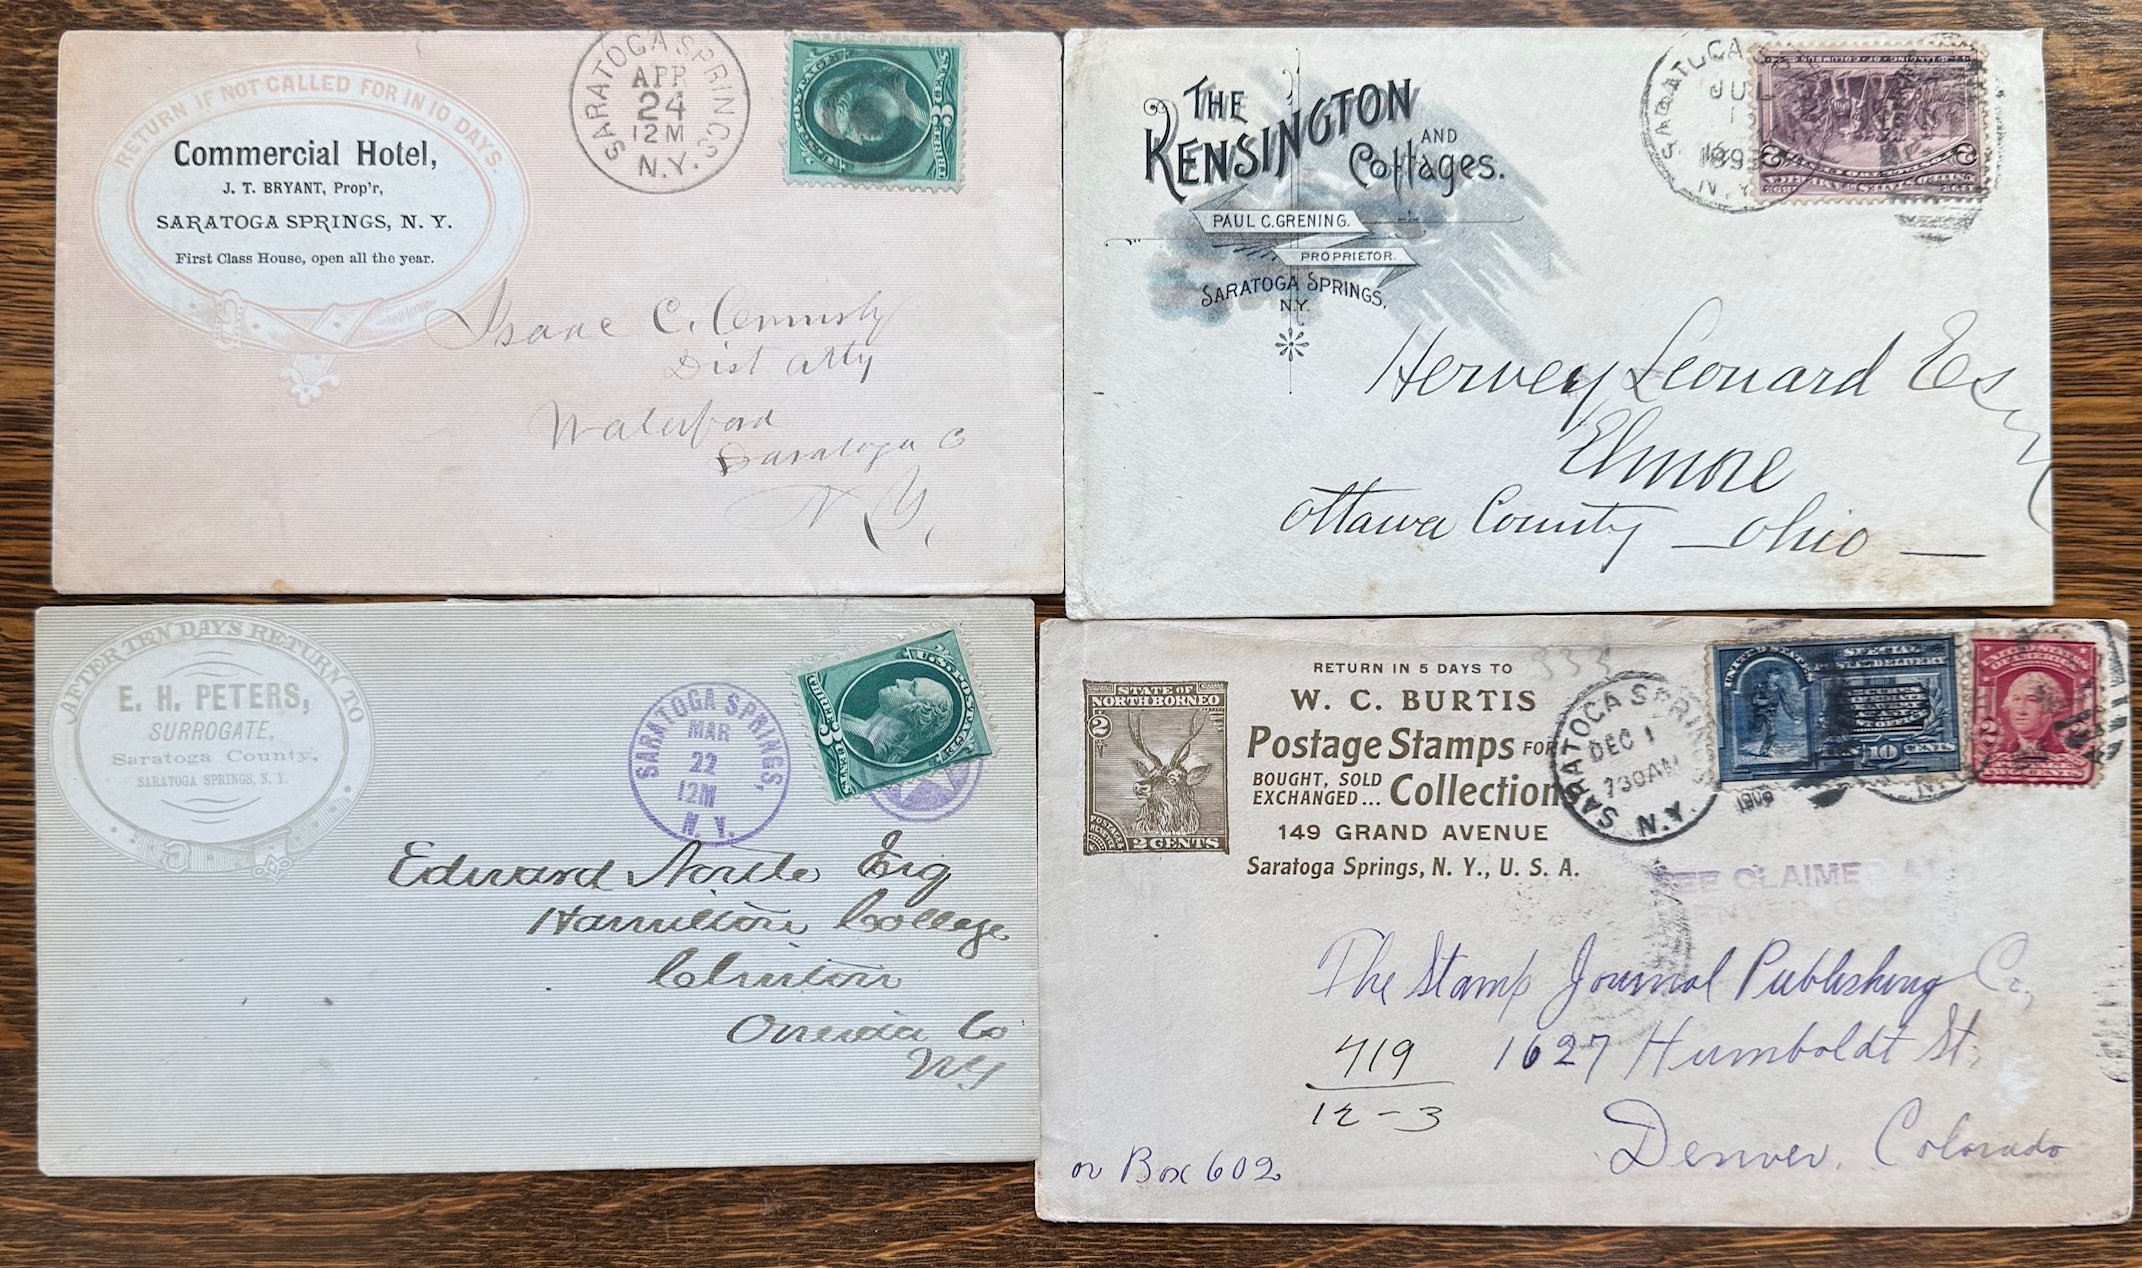 RETURN IF NOT CALLED FOR IN 10 DAYS.
Commercial Hotel,
J. T. BRYANT, Prop'r,
SARATOGA SPRINGS, N. Y.
First Class House, open all the year.
SARATOGA SPRINGS
APR
24
12 M
N.Y.
U.S. POSTAGE
THREE 3 CENTS
Isaac C. Ormsby
Dist Atty
Waterford
Saratoga C
N Y,
THE
KENSINGTON
AND
Cottages.
PAUL C. GRENING.
PROPRIETOR.
SARATOGA SPRINGS,
N.Y.
SARATOGA
JUL
189
N.Y.
2
2
Hervey Leonard Esq
Elmore
Ottawa County – Ohio –
AFTER TEN DAYS RETURN TO
E. H. PETERS,
SURROGATE,
Saratoga County,
SARATOGA SPRINGS, N. Y.
SARATOGA SPRINGS,
MAR
22
12M
N. Y.
U.S. POSTAGE
THREE 3 CENTS
Edward North Esq
Hamilton College
Clinton
Oneida Co
NY
RETURN IN 5 DAYS TO
W. C. BURTIS
Postage Stamps FOR
BOUGHT, SOLD
EXCHANGED... Collection
149 GRAND AVENUE
Saratoga Springs, N. Y., U. S. A.
STATE OF
NORTH BORNEO
2
POSTAGE
2 CENTS
333
SARATOGA SPRINGS
DEC 1
730AM
N.Y.
UNITED STATES
SPECIAL
DELIVERY
10 CENTS
2
FEE CLAIMED AT
DENVER, COLO
The Stamp Journal Publishing Co,
1627 Humboldt St,
Denver, Colorado
719
12 - 3
or Box 602